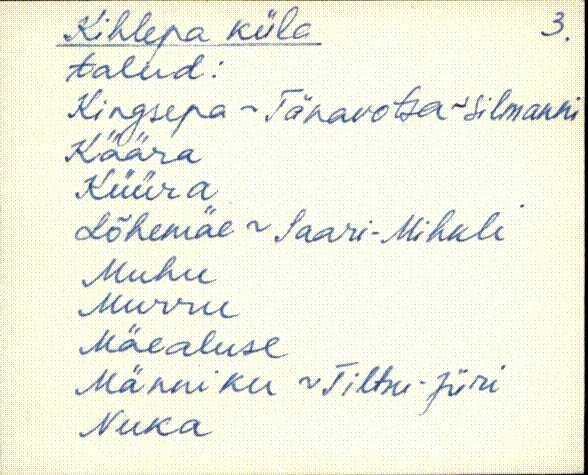 Kihlepa küla 3.
talud:
Kingsepa ~ Tänavotsa ~ Silmanni
Käära
Küüra
Lõhemäe ~ Saari-Mihkli
Muhu
Murru
Mäealuse
Männiku ~ Tiltsu-Jüri
Nuka